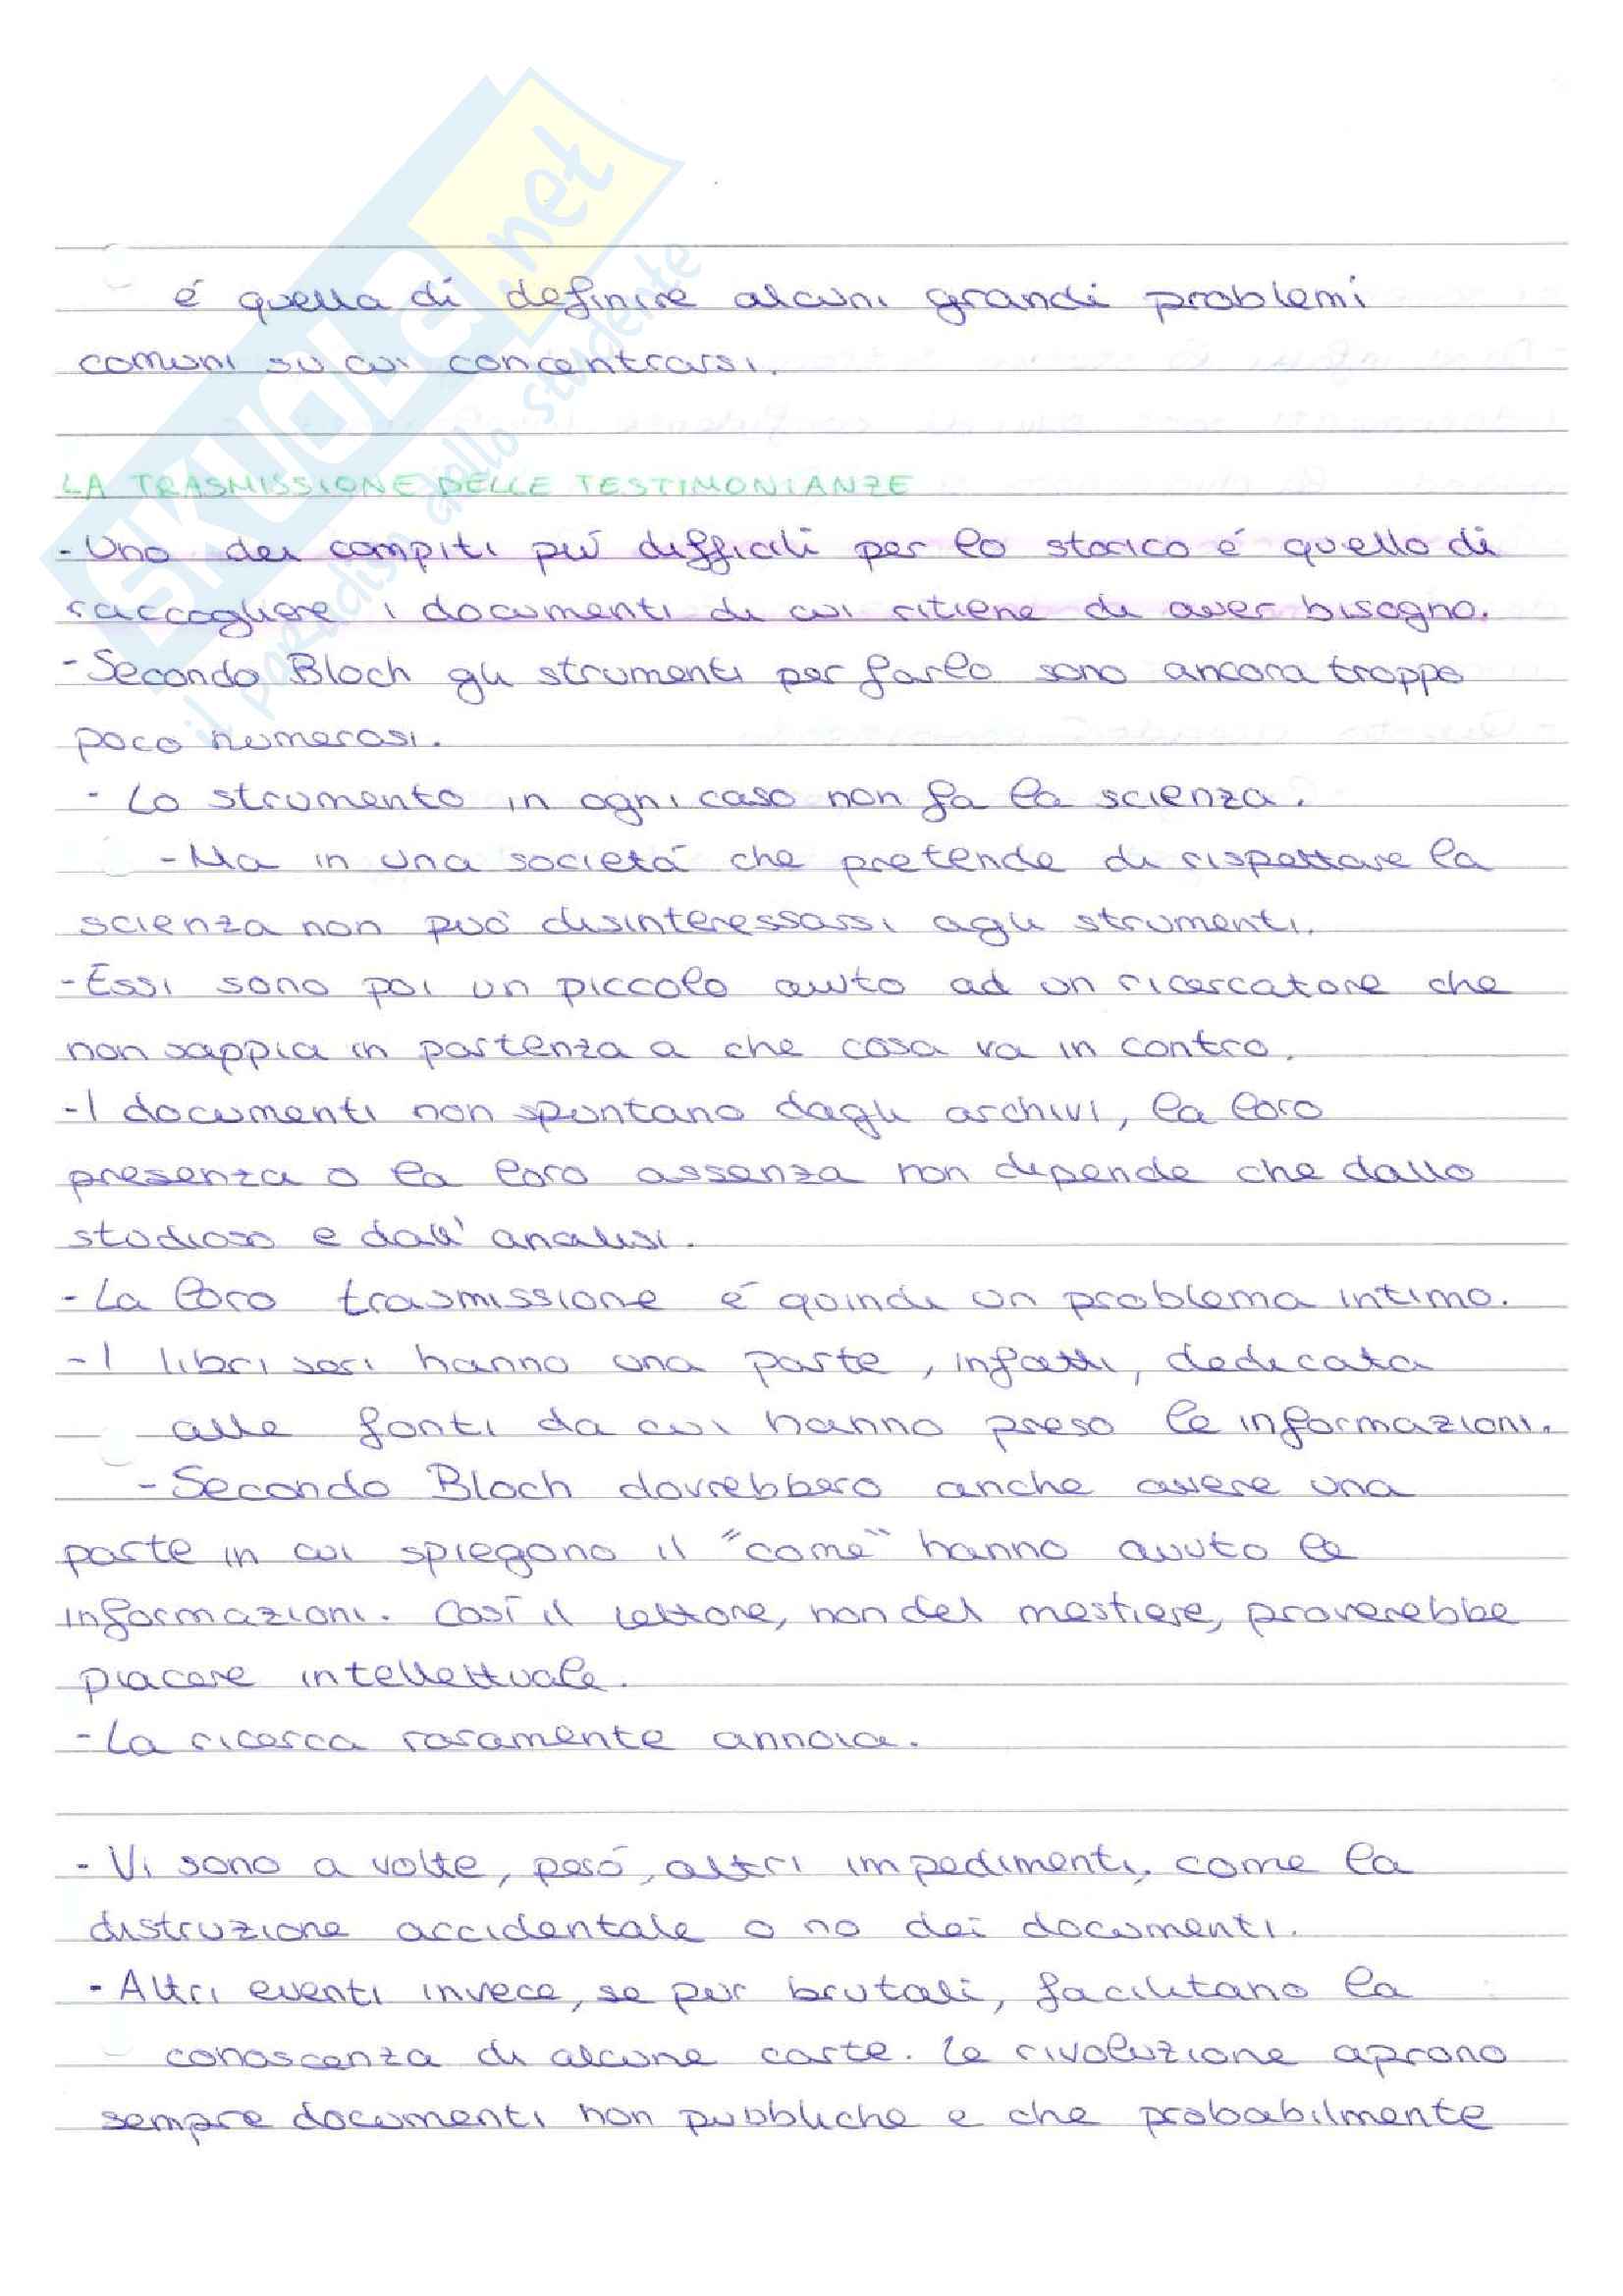 SKUOLA.net
il paradiso dello studente
é quella di definire alcuni grandi problemi
comuni su cui concentrarsi.
LA TRASMISSIONE DELLE TESTIMONIANZE
- Uno dei compiti piú difficili per lo storico é quello di
raccogliere i documenti di cui ritiene di aver bisogno.
- Secondo Bloch gli strumenti per farlo sono ancora troppo
poco numerosi.
- Lo strumento in ogni caso non fa la scienza.
- Ma in una societá che pretende di rispettare la
scienza non puó disinteressarsi agli strumenti.
- Essi sono poi un piccolo aiuto ad un ricercatore che
non sappia in partenza a che cosa va in contro.
- I documenti non spuntano dagli archivi, la loro
presenza o la loro assenza non dipende che dallo
studioso e dall' analisi.
- La loro trasmissione é quindi un problema intimo.
- I libri seri hanno una parte, infatti, dedicata
alle fonti da cui hanno preso le informazioni.
- Secondo Bloch dovrebbero anche avere una
parte in cui spiegono il "come" hanno avuto le
informazioni. Cosí il lettore, non del mestiere, proverebbe
piacere intellettuale.
- La ricerca raramente annoia.
- Vi sono a volte, peró, altri impedimenti, come la
distruzione accidentale o no dei documenti.
- Altri eventi invece, se pur brutali, facilitano la
conoscenza di alcune carte. Le rivoluzione aprono
sempre documenti non pubbliche e che probabilmente